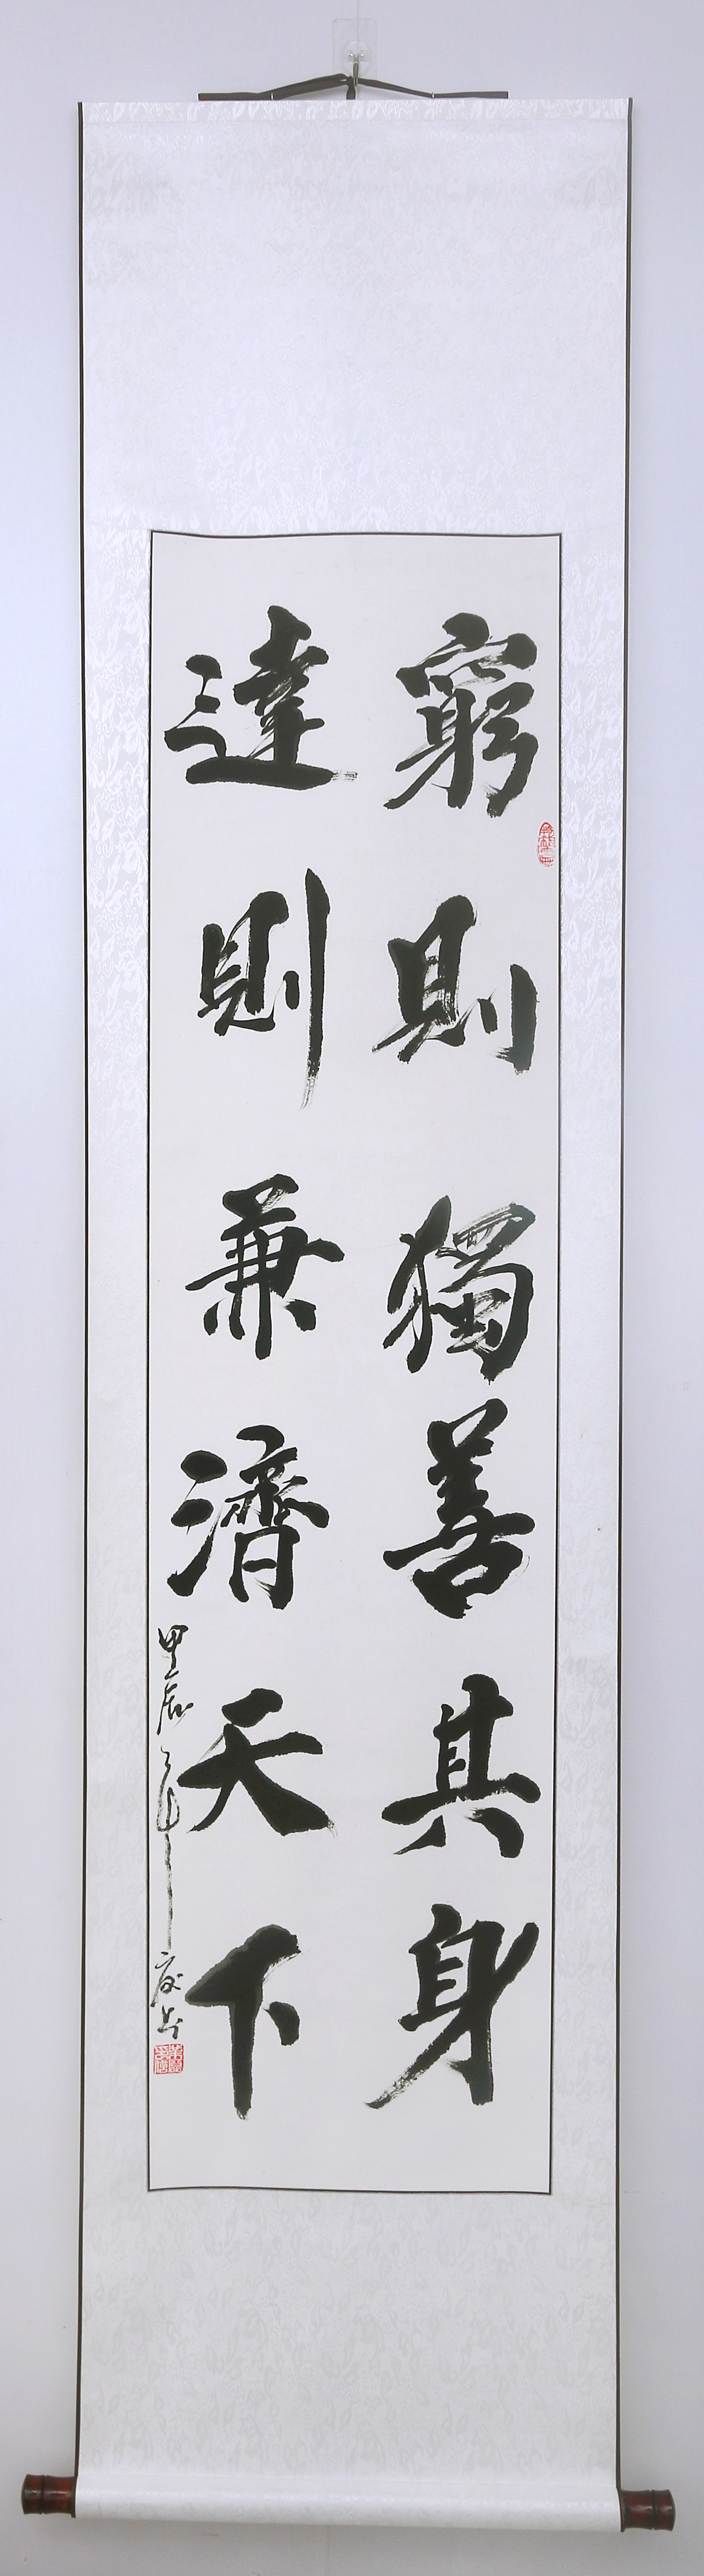 窮則獨善其身
達則兼濟天下
甲辰年